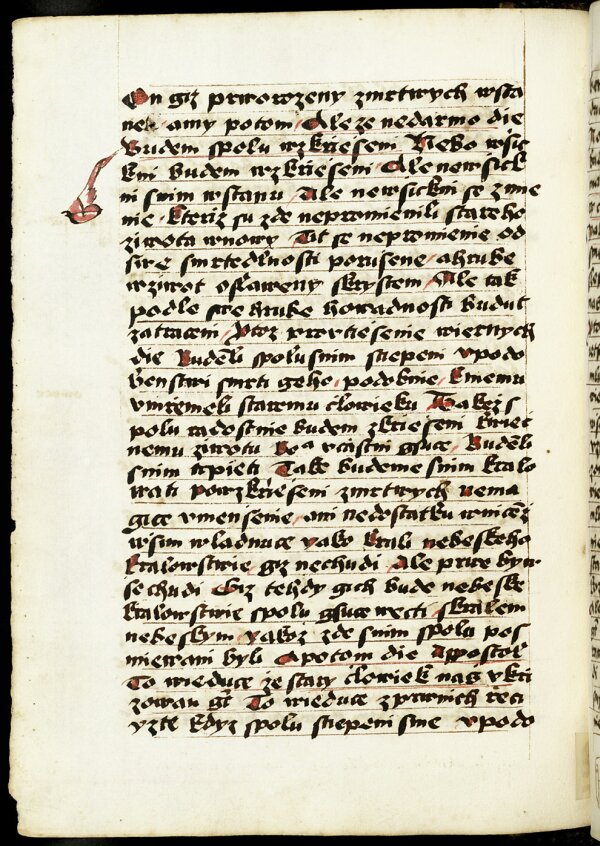 On giz prworozeny zmrtwych wsta
nel amy potom Ale ze nedarmo die
Budem spolu wzkriesseni Nebo wssic
kni budem wzkriesseni Ale newssick
ni snim wstanu Ale newssickni se zmie
nie kteriz su zde nepromienili stareho
ziwota wnowy Tit se nepromienie od
swe smrtedlnosti porussene ahrube
wzwot oslaweny skrystem Ale tak
podle swe hrube howadnosti budut
zatraceni wiernych
die Budeli spolu snim stiepeni vpodo
benstwi smrti geho podobnie kniemu
vmrtweli staremu clowieku Takez s
polu radostnie budem zkriesseni kwiec
nemu ziwotu gsuce Budeli
snim trpieti Take budeme snim kralo
wati powzkriesseni zmrtwych nema
gice vmensenie ani nedostatku wnicez
wssim wladnuce yako krali nebeskeho
kralowstwie giz nechudi Ale prwe byw
sse chudi Giz tehdy gich bude nebeske
kralowstwie spolu gsuce wecti skralem
nebeskym yakoz zde snim spolu pos
miewani byli Apotom die Appostol
To wieduce ze stary clowiek nas vkri
zowan gt To wieduce zprwnich reci
yzte kdyz spolu stiepeni sme vpodo